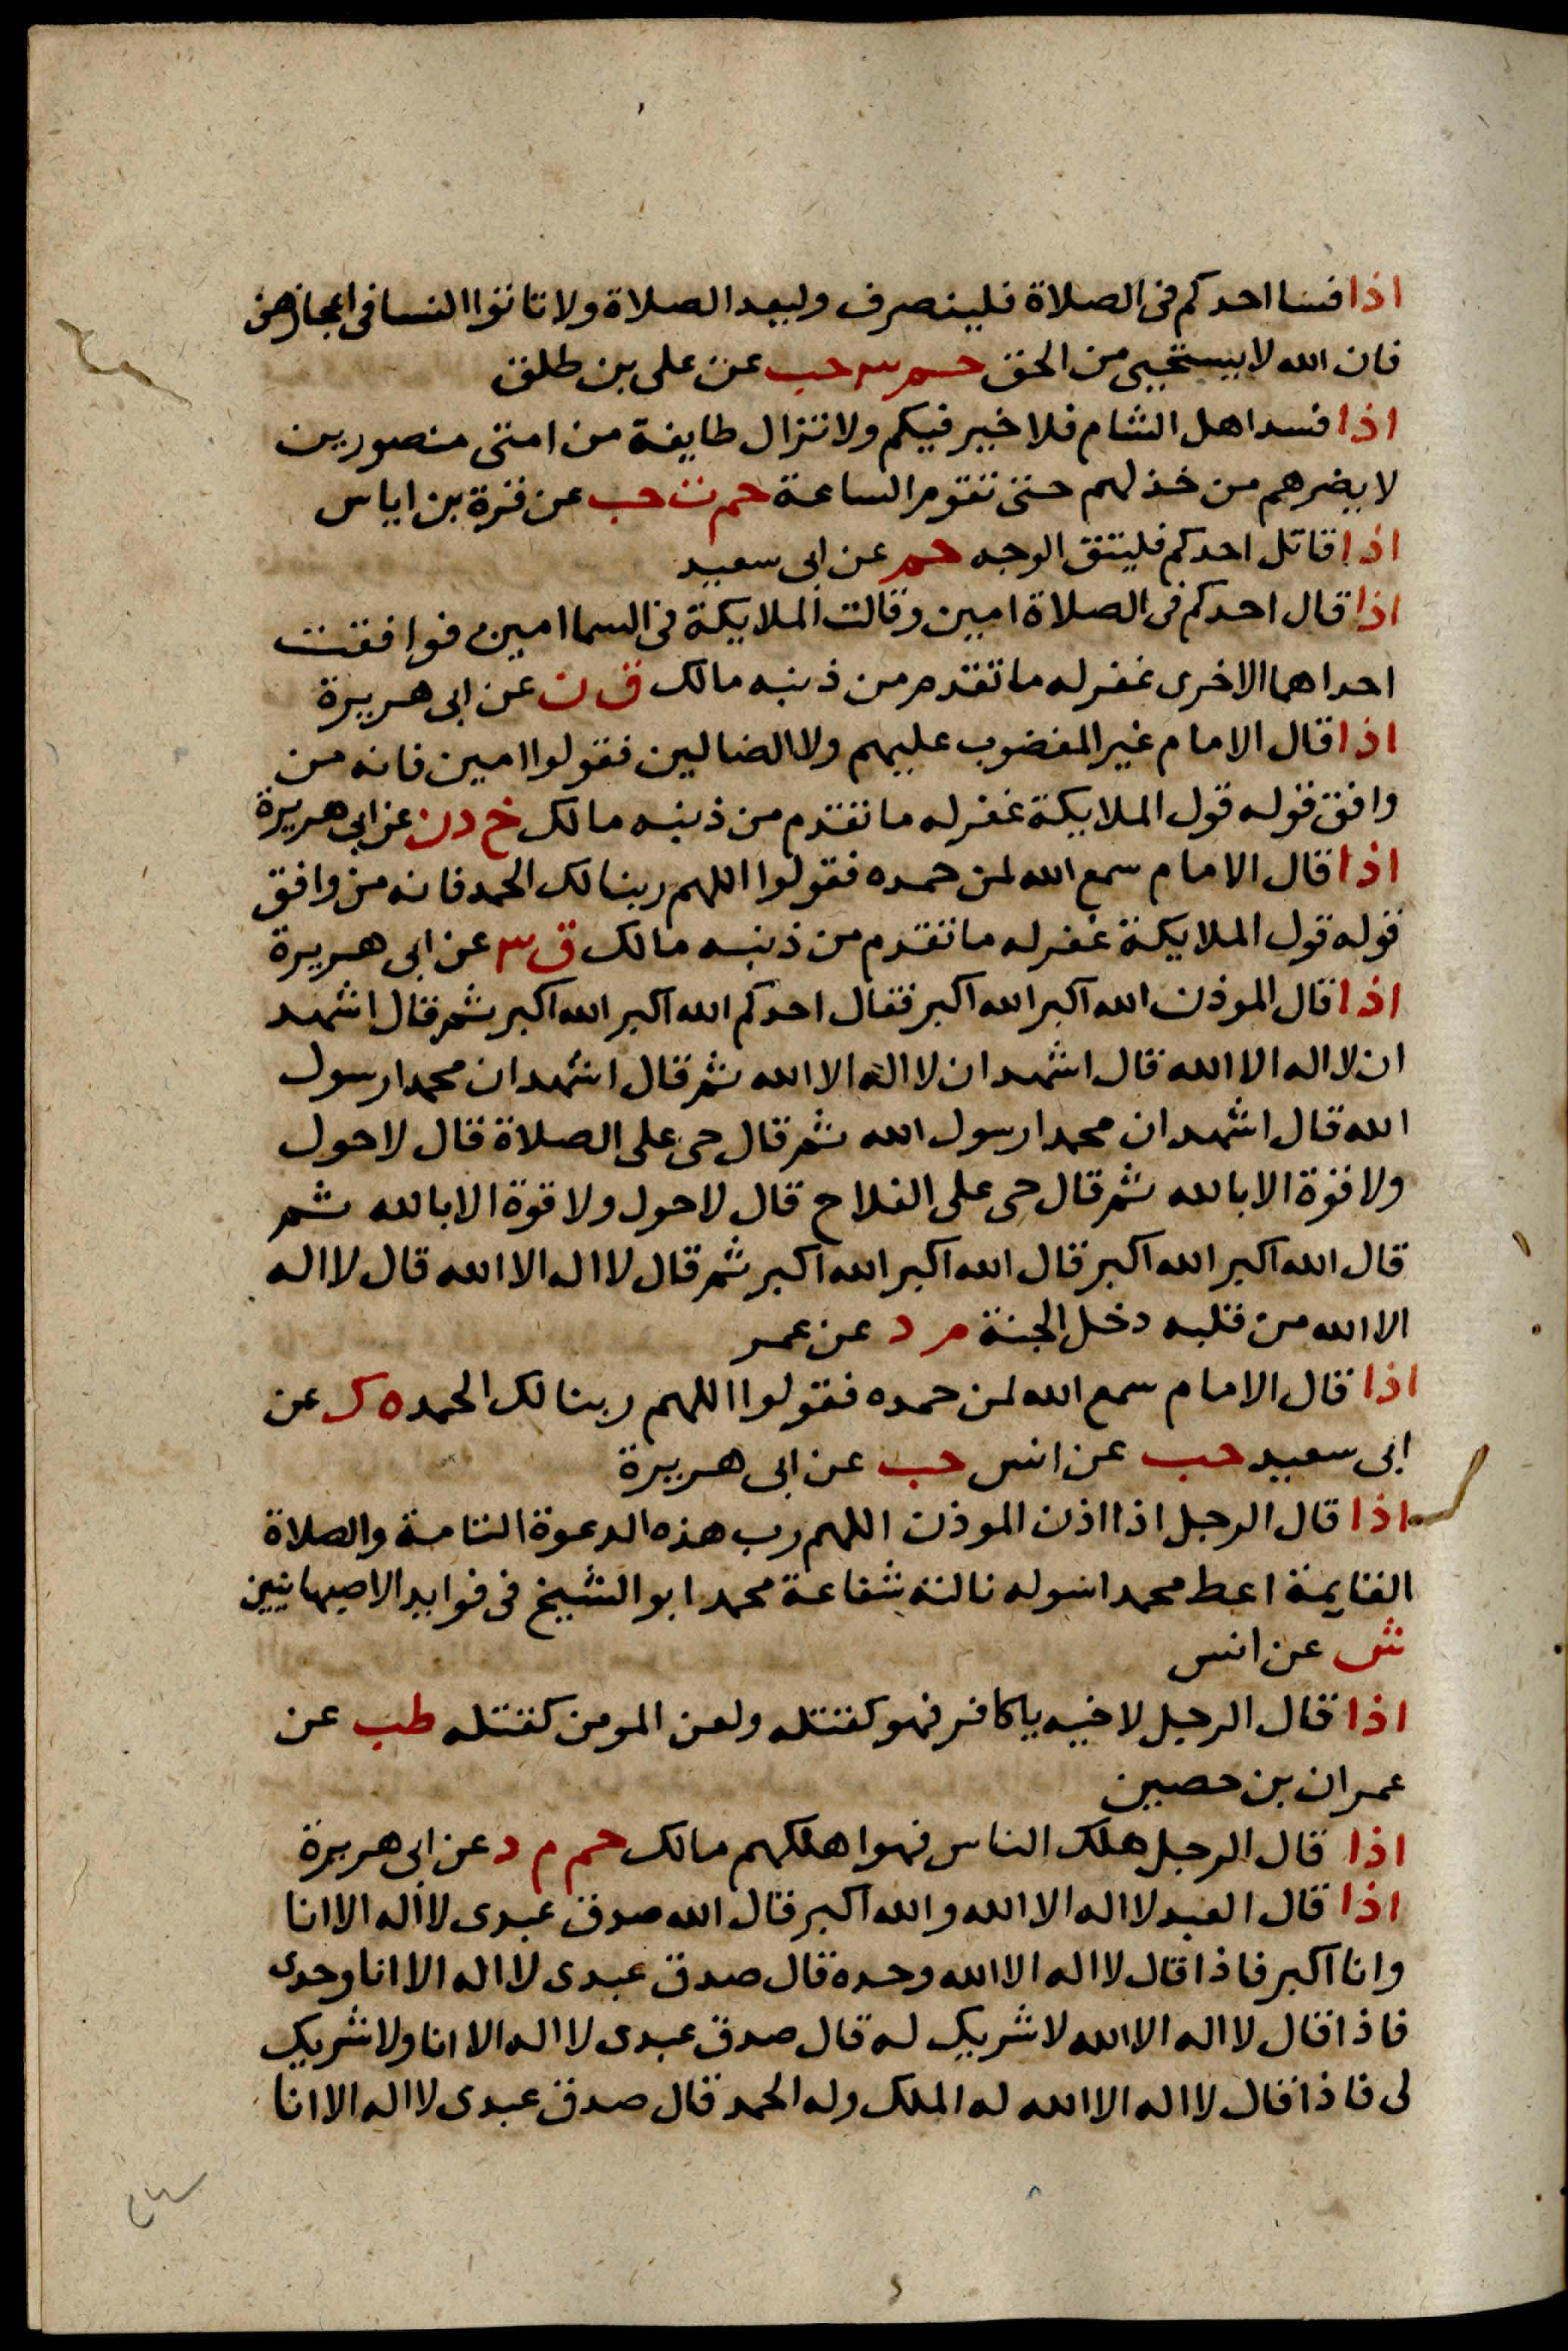 اذا فسا احدكم فى الصلاة فلينصرف وليعد الصلاة ولا تاتوا النسا فى اعجازهن
فان الله لا يستحيى من الحق حم ٣ حب عن على بن طلق
اذا فسد اهل الشام فلا خير فيكم ولا تزال طايفة من امتى منصورين
لا يضرهم من خذلهم حتى تقوم الساعة حم ت حب عن قرة بن اياس
اذا قاتل احدكم فليتق الوجه حم عن ابى سعيد
اذا قال احدكم فى الصلاة امين وقالت الملايكة فى السما امين فوافقت
احداهما الاخرى غفر له ما تقدم من ذنبه مالك ق ن عن ابى هريرة
اذا قال الامام غير المغضوب عليهم ولا الضالين فقولوا امين فانه من
وافق قوله قول الملايكة غفر له ما تقدم من ذنبه مالك خ د ن عن ابى هريرة
اذا قال الامام سمع الله لمن حمده فقولوا اللهم ربنا لك الحمد فانه من وافق
قوله قول الملايكة غفر له ما تقدم من ذنبه مالك ق ٣ عن ابى هريرة
اذا قال الموذن الله اكبر الله اكبر فقال احدكم الله اكبر الله اكبر ثم قال اشهد
ان لا اله الا الله قال اشهد ان لا اله الا الله ثم قال اشهد ان محمدا رسول
الله قال اشهد ان محمدا رسول الله ثم قال حى على الصلاة قال لا حول
ولا قوة الا بالله ثم قال حى على الفلاح قال لا حول ولا قوة الا بالله ثم
قال الله اكبر الله اكبر قال الله اكبر الله اكبر ثم قال لا اله الا الله قال لا اله
الا الله من قلبه دخل الجنة م د عن عمر
اذا قال الامام سمع الله لمن حمده فقولوا اللهم ربنا لك الحمد ه ك عن
ابى سعيد حب عن انس حب عن ابى هريرة
اذا قال الرجل اذا اذن الموذن اللهم رب هذه الدعوة التامة والصلاة
القايمة اعط محمدا سوله نالته شفاعة محمد ابو الشيخ فى فوايد الاصبهانيين
ش عن انس
اذا قال الرجل لاخيه ياكافر فهو كقتله ولعن المومن كقتله طب عن
عمران بن حصين
اذا قال الرجل هلك الناس فهو اهلكهم مالك حم م د عن ابى هريرة
اذا قال العبد لا اله الا الله والله اكبر قال الله صدق عبدى لا اله الا انا
وانا اكبر فاذا قال لا اله الا الله وحده قال صدق عبدى لا اله الا انا وحدى
فاذا قال لا اله الا الله لا شريك له قال صدق عبدى لا اله الا انا ولا شريك
لى فاذا قال لا اله الا الله له الملك وله الحمد قال صدق عبدى لا اله الا انا